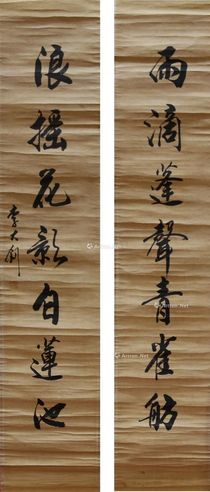 雨滴蓬聲青雀舫
浪摇花影白蓮池
李大釗
Artron.Net
Artron.Net